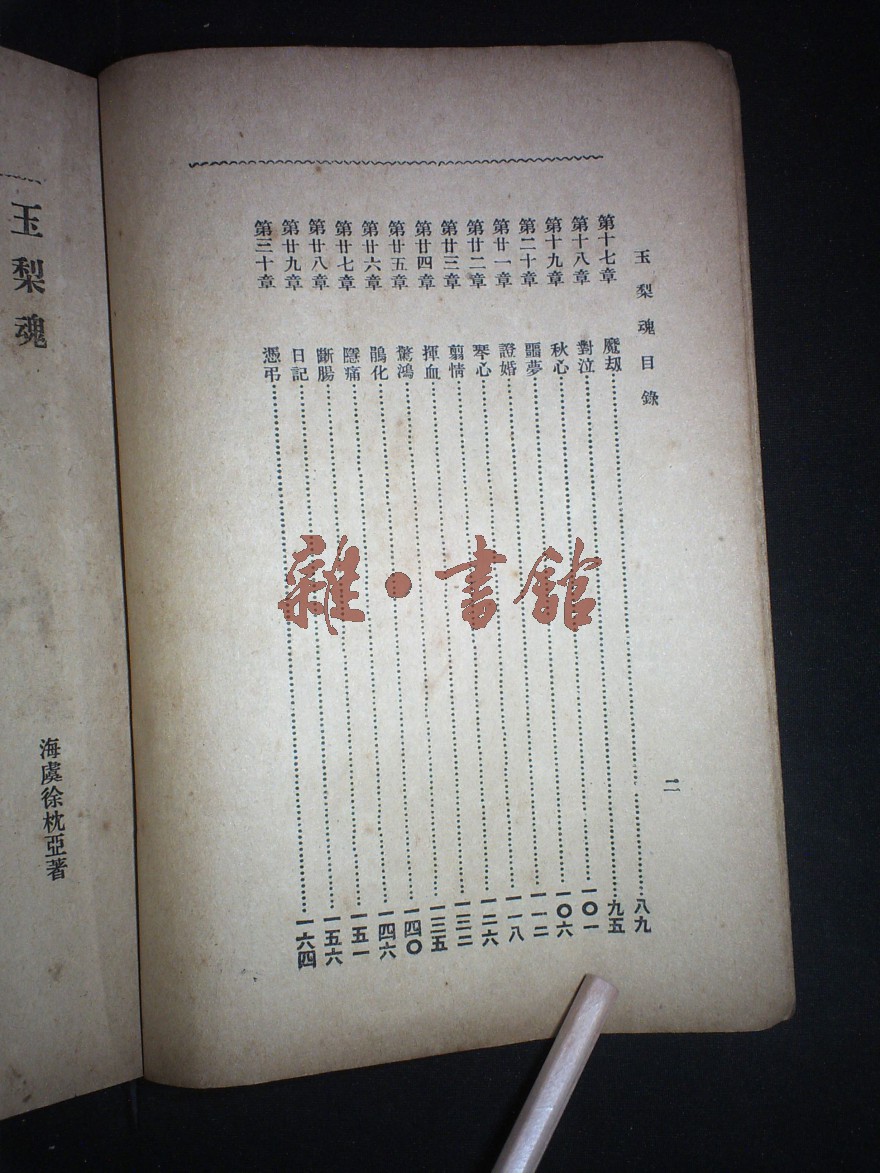 玉梨魂目錄
二
第十七章 魔劫 八九
第十八章 對泣 九五
第十九章 秋心 一〇一
第二十章 噩夢 一〇六
第廿一章 證婚 一一二
第廿二章 琴心 一一八
第廿三章 翦情 一二六
第廿四章 揮血 一三二
第廿五章 驚鴻 一三五
第廿六章 鵑化 一四〇
第廿七章 隱痛 一四六
第廿八章 斷腸 一五一
第廿九章 日記 一五六
第三十章 憑弔 一六四
玉梨魂
海虞徐枕亞著
雜·書館